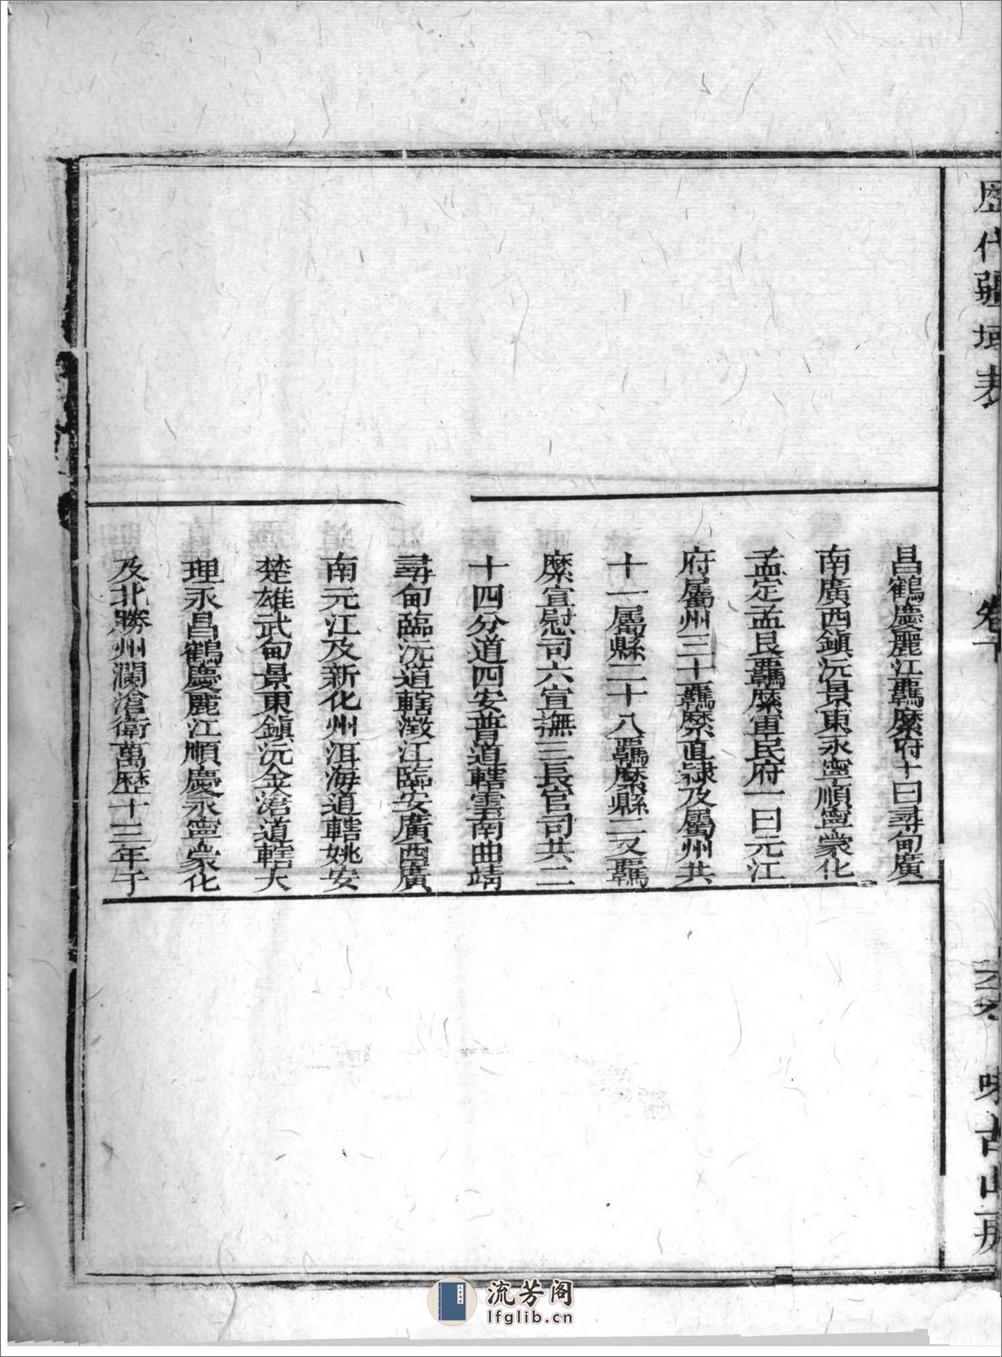 歷代疆域表
卷下
六六
味古山房
昌鶴慶麗江羈縻府十曰尋甸廣
南廣西鎮沅景東永寧順寧蒙化
孟定孟艮羈縻軍民府一曰元江
府屬州三十羈縻直隸及屬州共
十一屬縣二十八羈縻縣二又羈
縻宣慰司六宣撫三長官司共二
十四分道四安普道轄雲南曲靖
尋甸臨沅道轄澂江臨安廣西廣
南元江及新化州洱海道轄姚安
楚雄武甸景東鎮沅金滄道轄大
理永昌鶴慶麗江順慶永寧蒙化
及北勝州瀾滄衛萬歷十三年于
流芳阁
lfglib.cn